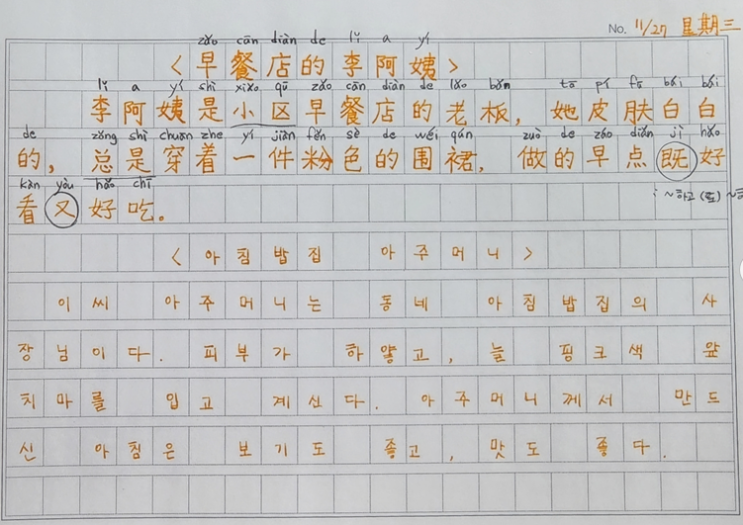 No. 11/27 星期三
zǎo cān diàn de lǐ a yí
<早餐店的李阿姨>
lǐ a yí shì xiǎo qū zǎo cān diàn de lǎo bǎn tā pí fū bái bái
李阿姨是小区早餐店的老板,她皮肤白白
de zǒng shì chuān zhe yí jiàn fěn sè de wéi qún zuò de zǎo diǎn jì hǎo
的,总是穿着一件粉色的围裙,做的早点既好
kàn yòu hǎo chī
看又好吃。
: ~하고 (또) ~하
<아침밥집 아주머니>
이씨 아주머니는 동네 아침밥집의 사
장님이다. 피부가 하얗고, 늘 핑크색 앞
치마를 입고 계신다. 아주머니께서 만드
신 아침은 보기도 좋고, 맛도 좋다.